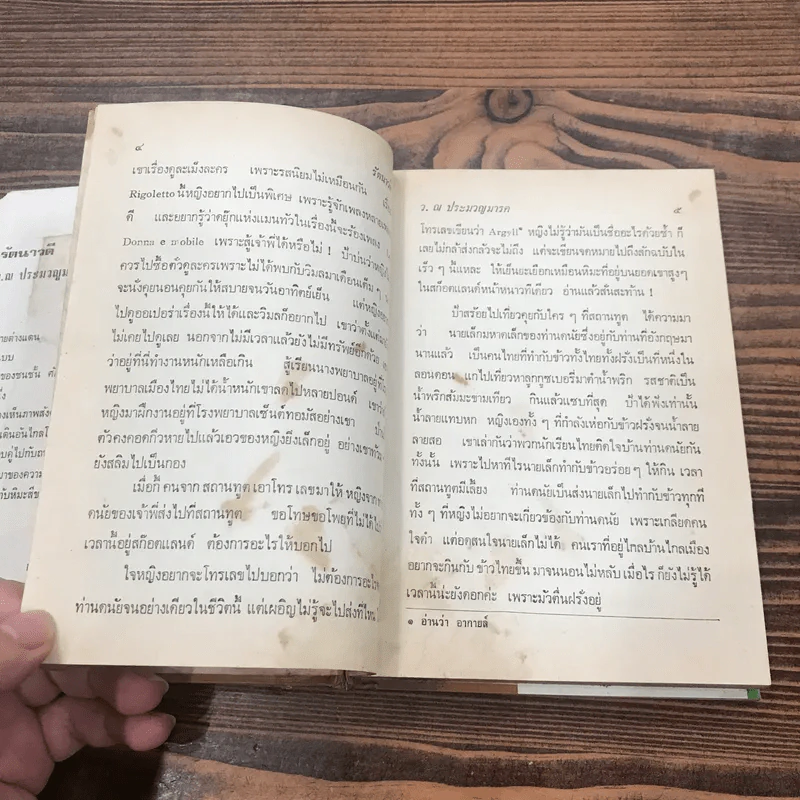 รัตนาวดี
ว.ณ ประมวญม
ายต่างแดน
แบบ
๔
เขาเรื่องดูละเม็งละคร เพราะรสนิยมไม่เหมือนกัน
Rigoletto นี้หญิงอยากไปเป็นพิเศษ เพราะรู้จักเพลงหลายเพลง
ดี และอยากรู้ว่าดยุ๊กแห่งแมนทัวในเรื่องนี้จะร้องเพลง
Donna e mobile เพราะสู้เจ้าพี่ได้หรือไม่ ! ป้าบ่นว่าหญิง
ควรไปซื้อตั๋วดูละครเพราะไม่ได้พบกับวิมลมาเดือนเต็ม ๆ
จะนั่งคุยนอนคุยกันให้สบายจนวันอาทิตย์เย็น แต่หญิง
ไปดูออเปอร่าเรื่องนี้ให้ได้และวิมลก็อยากไป เขาว่าตั้งแต่
ไม่เคยไปดูเลย นอกจากไม่มีเวลาแล้วยังไม่มีทรัพย์อีกด้วย
ว่าอยู่ที่นี่ทำงานหนักเหลือเกิน สู้เรียนนางพยาบาลอยู่ที่
พยาบาลเมืองไทยไม่ได้น้ำหนักเขาลดไปหลายปอนด์ เขาว่า
หญิงมาฝึกงานอยู่ที่โรงพยาบาลเซ็นต์ทอมัสอย่างเขา
ตัวคงคอดกิ่วหายไปแล้วเอวของหญิงยิ่งเล็กอยู่ อย่างเขา
ยังสลิมไปเป็นกอง
เมื่อกี้ คนจาก สถานทูต เอาโทร เลขมาให้ หญิงจาก
ดนัยของเจ้าพี่ส่งไปที่สถานทูต ขอโทษขอโพยที่ไม่ได้
เวลานี้อยู่สก๊อตแลนด์ ต้องการอะไรให้บอกไป
ใจหญิงอยากจะโทรเลขไปบอกว่า ไม่ต้องการอะไร
ท่านดนัยจนอย่างเดียวในชีวิตนี้ แต่เผอิญไม่รู้จะไปส่งที่ไหน
ว. ณ ประมวญมารค ๕
โทรเลขเขียนว่า Argyll๑ หญิงไม่รู้ว่ามันเป็นชื่ออะไรด้วยซ้ำ ก็
เลยไม่กล้าส่งกลัวจะไม่ถึง แต่จะเขียนจดหมายไปถึงสักฉบับใน
เร็ว ๆ นี้แหละ ให้เย็นยะเยือกเหมือนหิมะที่อยู่บนยอดเขาสูงๆ
ในสก็อตแลนด์หน้าหนาวทีเดียว อ่านแล้วสั่นสะท้าน !
ป้าสร้อยไปเที่ยวคุยกับใคร ๆ ที่สถานทูต ได้ความมา
ว่า นายเล็กมหาดเล็กของท่านดนัยซึ่งอยู่กับท่านที่อังกฤษมา
นานแล้ว เป็นคนไทยที่ทำกับข้าวทั้งไทยทั้งฝรั่งเป็นที่หนึ่งใน
ลอนดอน แกไปเที่ยวหาลูกกูซเบอรี่มาตำน้ำพริก รสชาติเป็น
น้ำพริกส้มมะขามเทียว กินแล้วแซบที่สุด ป้าได้ฟังเท่านั้น
น้ำลายแทบหก หญิงเองทั้ง ๆ ที่กำลังเห่อกับข้าวฝรั่งจนน้ำลาย
ลายสอ เขาเล่ากันว่าพวกนักเรียนไทยติดใจบ้านท่านดนัยกัน
ทั้งนั้น เพราะไปหาทีไรนายเล็กทำกับข้าวอร่อยๆ ให้กิน เวลา
ที่สถานทูตมีเลี้ยง ท่านดนัยเป็นส่งนายเล็กไปทำกับข้าวทุกที
ทั้ง ๆ ที่หญิงไม่อยากจะเกี่ยวข้องกับท่านดนัย เพราะเกลียดคน
ใจดำ แต่อดสนใจนายเล็กไม่ได้ คนเราที่อยู่ไกลบ้านไกลเมือง
อยากจะกินกับ ข้าวไทยขึ้น มาจนนอนไม่หลับ เมื่อไร ก็ยังไม่รู้ได้
เวลานี้น่ะยังดอกค่ะ เพราะมัวตื่นฝรั่งอยู่
๑ อ่านว่า อากายล์